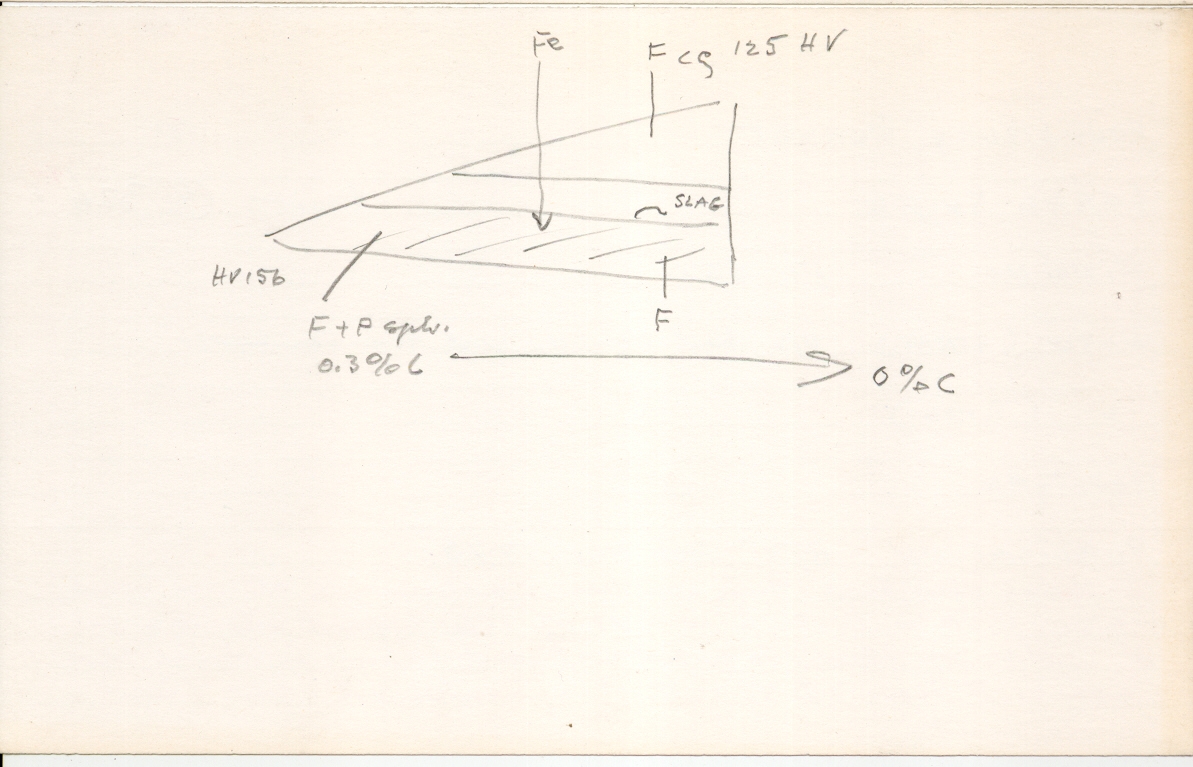 Fe
F cg 125 HV
SLAG
HV 156
F
F + P sph.
0.3% C
0% C